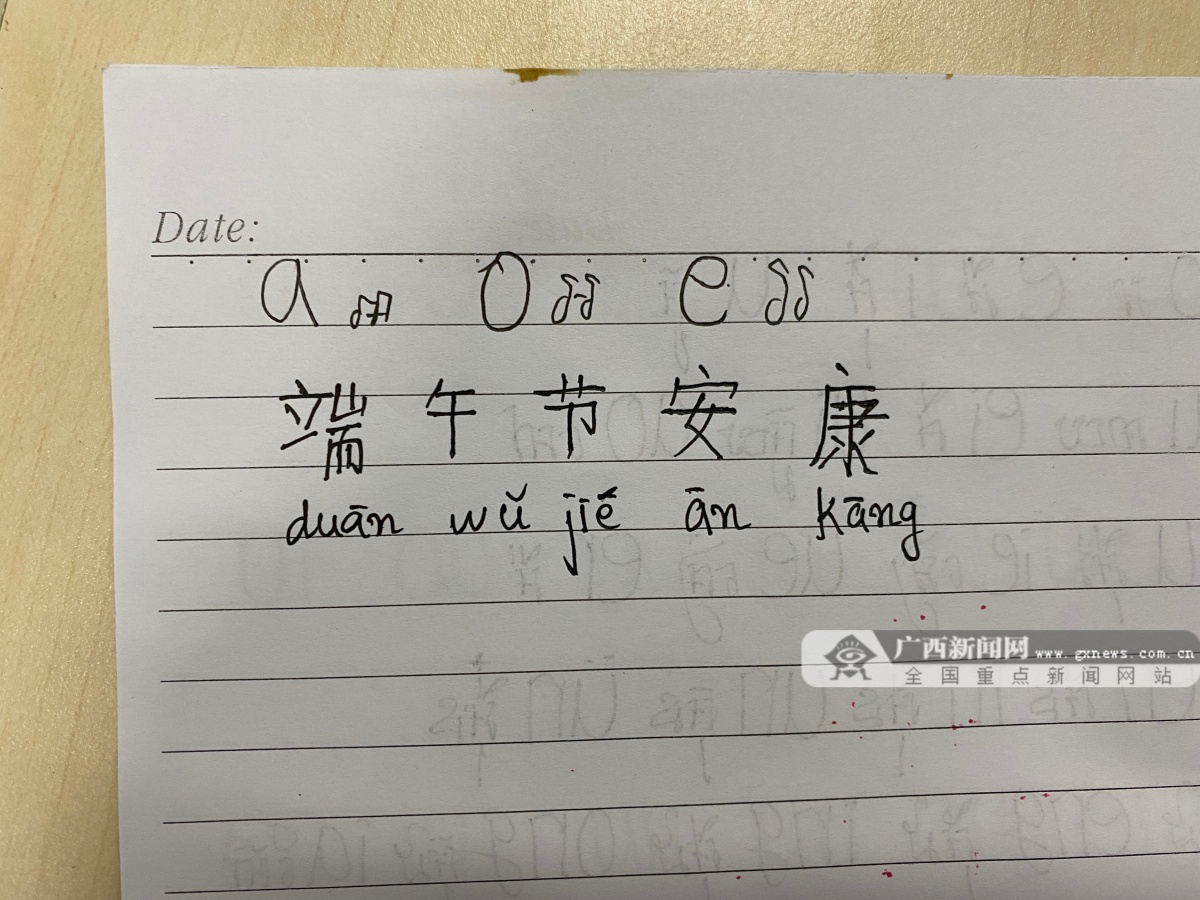 Date:
a o e
端午节安康
duān wǔ jié ān kāng
广西新闻网 www.gxnews.com.cn
全国重点新闻网站